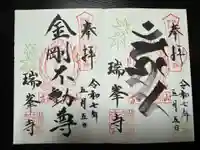 奉拝
令和七年
五月五日
瑞峯寺
奉拝
金剛不動尊
令和七年
五月五日
瑞峯寺